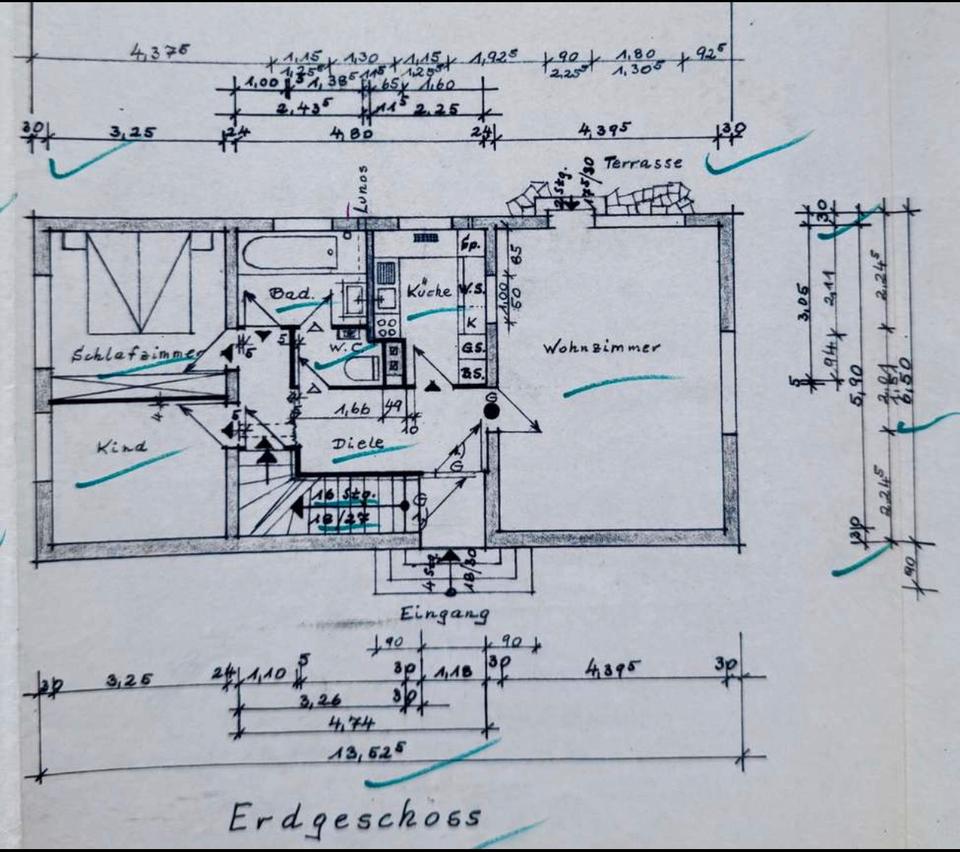 4,37⁵ 1,15 1,30 1,15 1,92⁵ 90 1,80 92⁵
2,25⁵ 1,30⁵
1,00 1,38⁵ 11⁵ 65 1,60
2,43⁵ 11⁵ 2,25
30 3,25 24 4,80 24 4,39⁵ 30
Lunos
2 Stg.
17⁵/30
Terrasse
Sp.
Bad.
Küche
K
G.S.
W.C.
Schlafzimmer
Wohnzimmer
85
1,00
50
5
5
4
5
1,66 49
10
Kind
Diele
G
G
G
16 Stg.
18/27
4 Stg.
18/30
Eingang
30
2,11
94
3,05
5
5,90
30
2,24⁵
2,01
1,51
2,24⁵
6,50
90
90 90
30 3,25 24 1,10 5 30 1,18 30 4,39⁵ 30
3,26 30
4,74
13,52⁵
Erdgeschoss